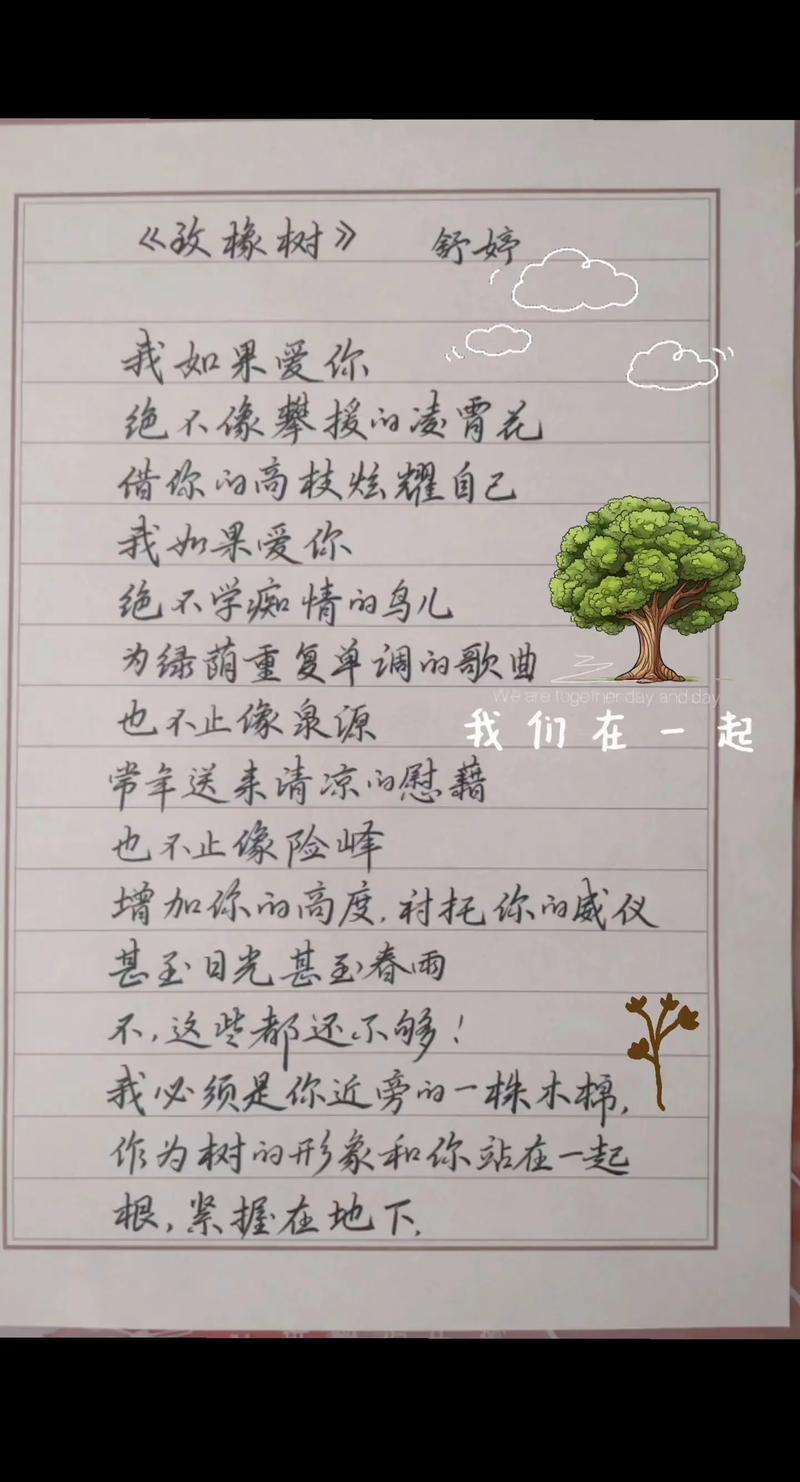 《致橡树》 舒婷
我如果爱你
绝不像攀援的凌霄花
借你的高枝炫耀自己
我如果爱你
绝不学痴情的鸟儿
为绿荫重复单调的歌曲
也不止像泉源
We are together day and day
我们在一起
常年送来清凉的慰藉
也不止像险峰
增加你的高度,衬托你的威仪
甚至日光甚至春雨
不,这些都还不够!
我必须是你近旁的一株木棉,
作为树的形象和你站在一起
根,紧握在地下,